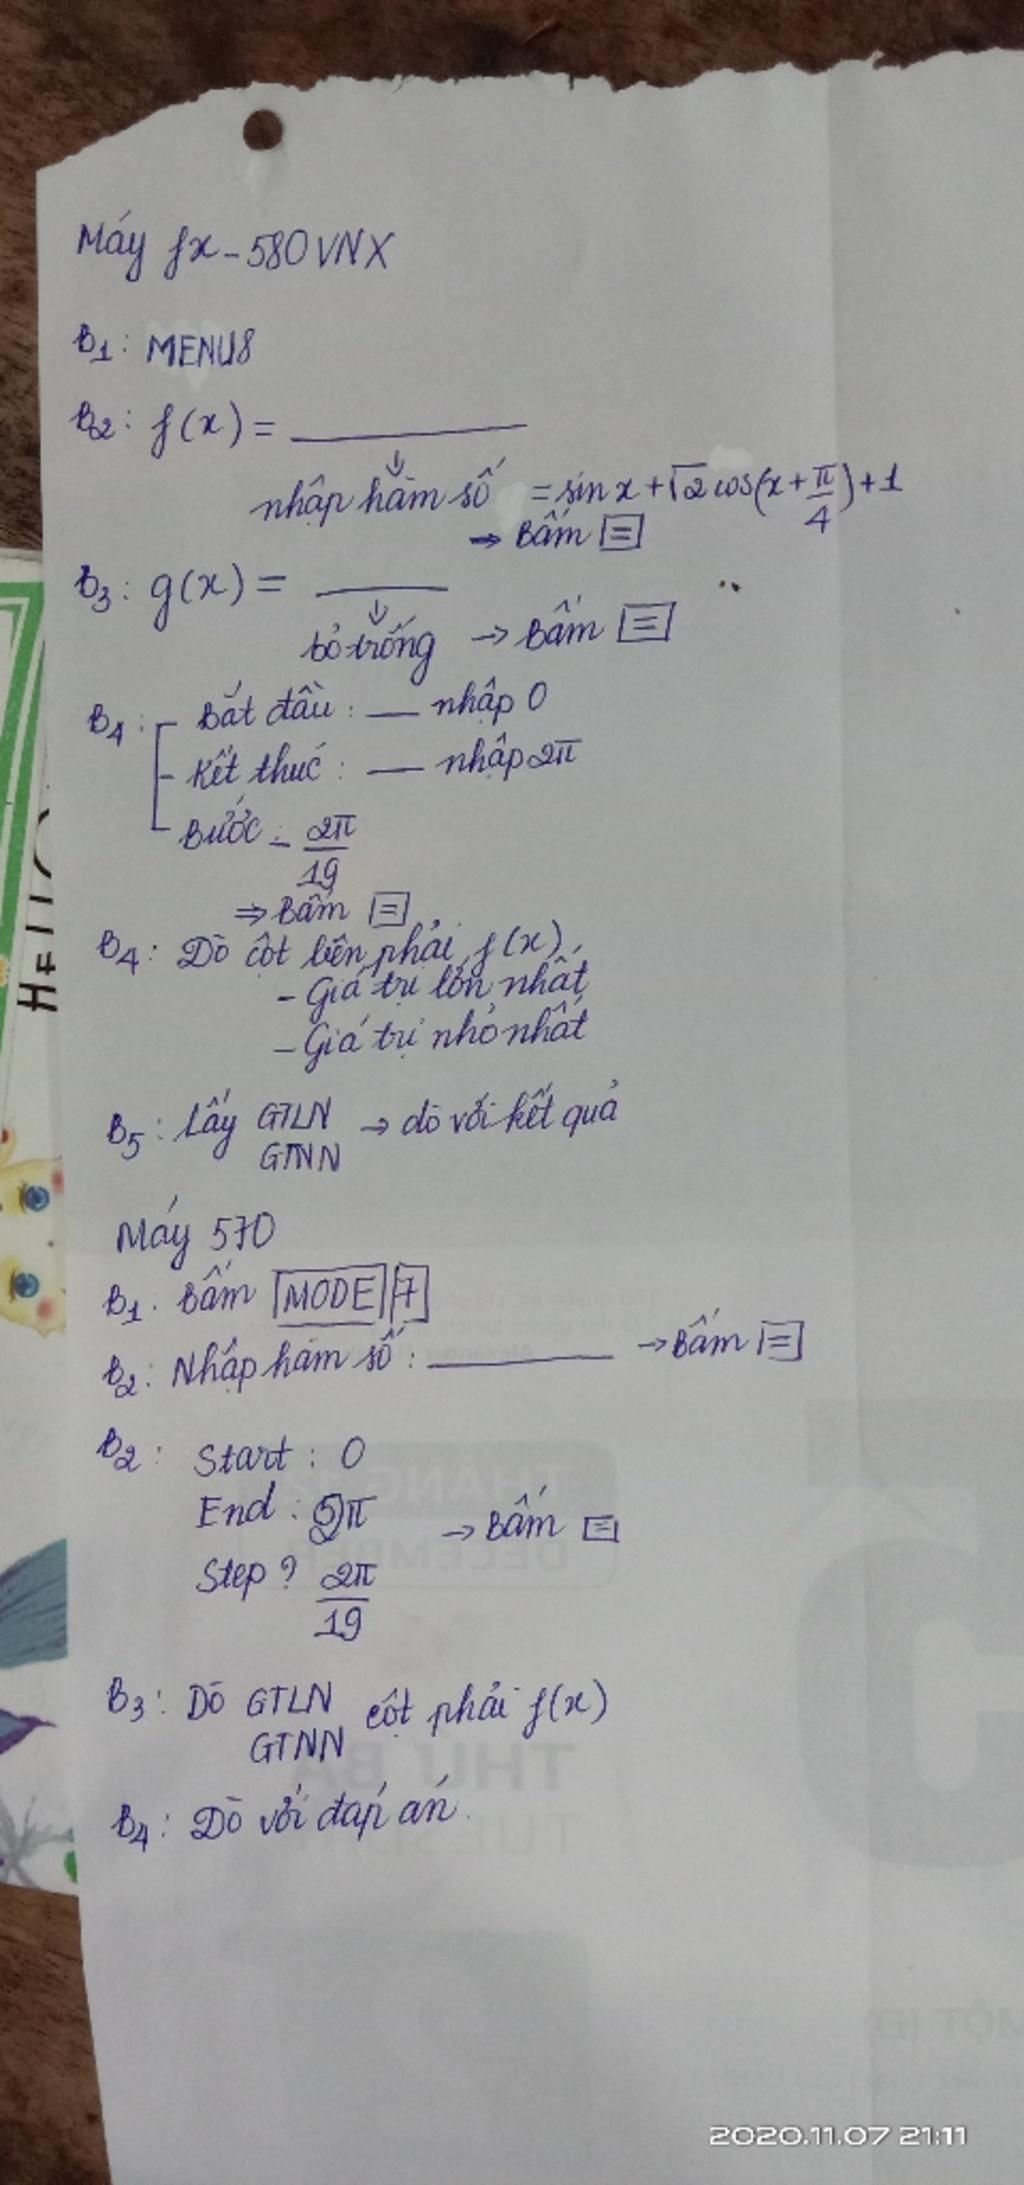 Máy fx-580VNX
B1: MENU8
B2: f(x) = ______
nhập hàm số = sin x + √2 cos(x + π/4) + 1
→ Bấm [=]
B3: g(x) = ______
bỏ trống → Bấm [=]
B4: - Bắt đầu : __ nhập 0
- Kết thúc : __ nhập 2π
- Bước : 2π/19
⇒ Bấm [=]
B4: Dò cột bên phải f(x)
- Giá trị lớn nhất
- Giá trị nhỏ nhất
B5: Lấy GTLN → dò với kết quả
GTNN
Máy 570
B1. Bấm [MODE] [7]
B2: Nhập hàm số : ______ → Bấm [=]
B2: Start : 0
End : 2π → Bấm [=]
Step ? 2π/19
B3: Dò GTLN cột phải f(x)
GTNN
B4: Dò với đáp án.
THÁNG 12
DECEMBER
THỨ BA
HELLO
2020.11.07 21:11